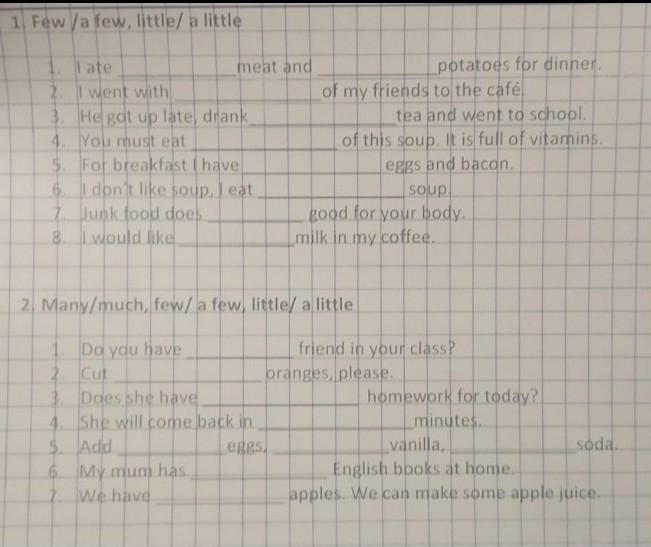 1. Few /a few, little/ a little
1. I ate ____________ meat and ____________ potatoes for dinner.
2. I went with ____________ of my friends to the café.
3. He got up late, drank ____________ tea and went to school.
4. You must eat ____________ of this soup. It is full of vitamins.
5. For breakfast I have ____________ eggs and bacon.
6. I don't like soup, I eat ____________ soup.
7. Junk food does ____________ good for your body.
8. I would like ____________ milk in my coffee.
2. Many/much, few/ a few, little/ a little
1. Do you have ____________ friend in your class?
2. Cut ____________ oranges, please.
3. Does she have ____________ homework for today?
4. She will come back in ____________ minutes.
5. Add ____________ eggs, ____________ vanilla, ____________ soda.
6. My mum has ____________ English books at home.
7. We have ____________ apples. We can make some apple juice.